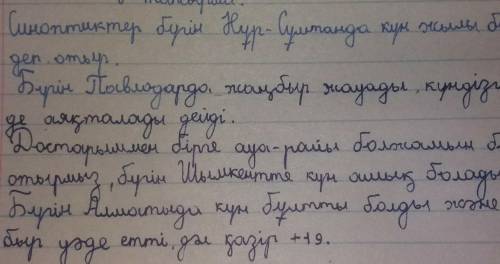 Синоптиктер бүгін Нұр-Сұлтанда күн жылы б
деп отыр.
Бүгін Павлодарда жаңбыр жауады, күндізг
де аяқталады дейді.
Достарыммен бірге ауа-райы болжамын б
отырмыз, бүгін Шымкентте күн ашық болады
Бүгін Алматыда күн бұлтты болды және
быр уәде етті, дәл қазір +19.